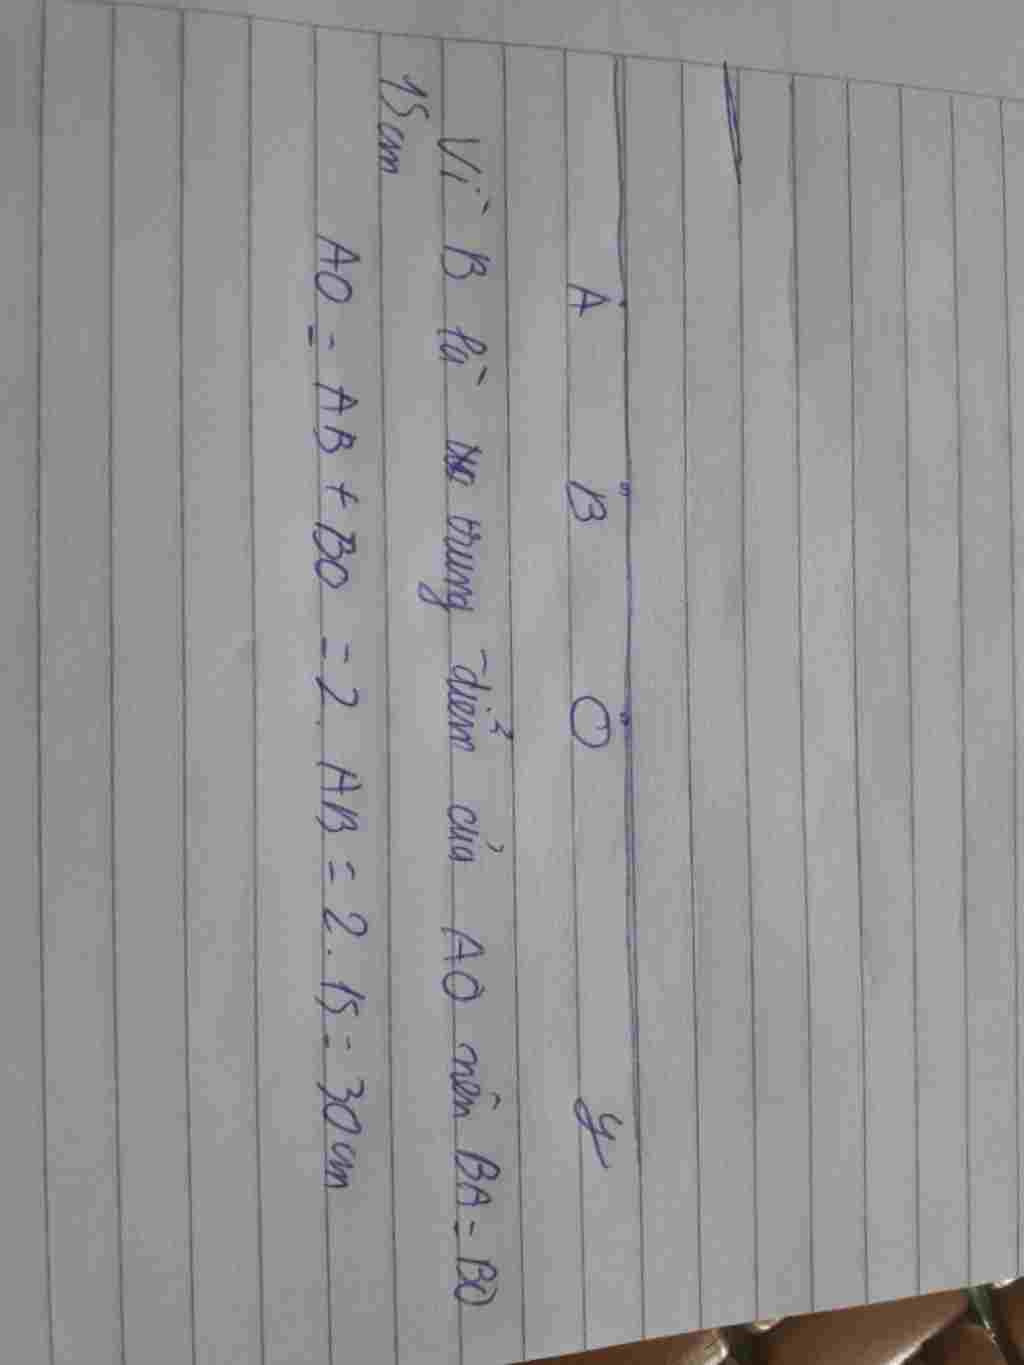 A B O y
Vì B là trung điểm của AO nên BA = BO
15cm
AO = AB + BO = 2. AB = 2. 15 = 30cm